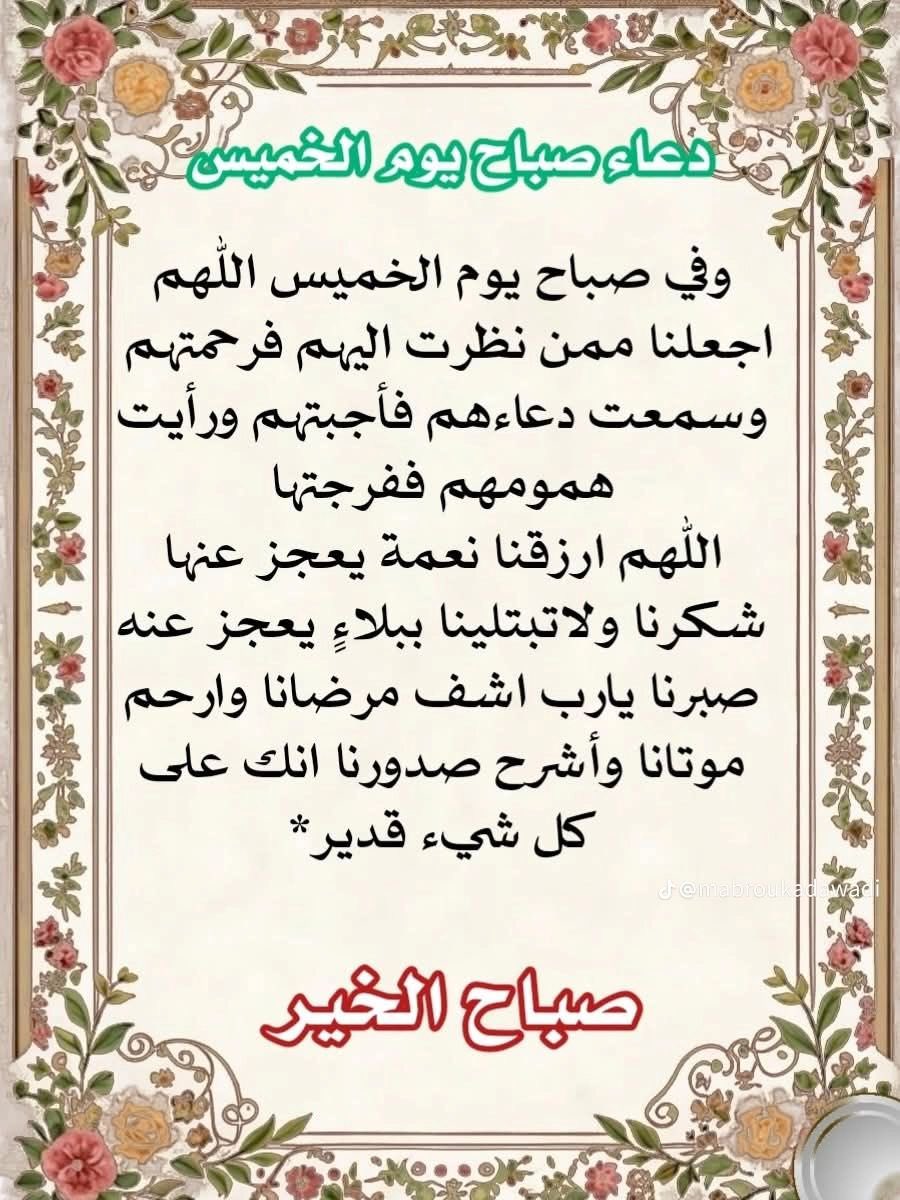 دعاء صباح يوم الخميس
وفي صباح يوم الخميس اللهم
اجعلنا ممن نظرت اليهم فرحمتهم
وسمعت دعاءهم فأجبتهم ورأيت
همومهم ففرجتها
اللهم ارزقنا نعمة يعجز عنها
شكرنا ولاتبتلينا ببلاءٍ يعجز عنه
صبرنا يارب اشف مرضانا وارحم
موتانا وأشرح صدورنا انك على
كل شيء قدير*
@mabroukadawadi
صباح الخير